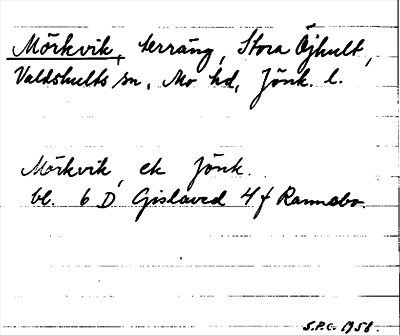 Mörkvik, terräng, Stora Öjhult,
Valdshults sn, Mo hd, Jönk. l.
Mörkvik, ek Jönk.
bl. 6 D Gislaved 4 f Rannebo.
S.P.G. 1958.